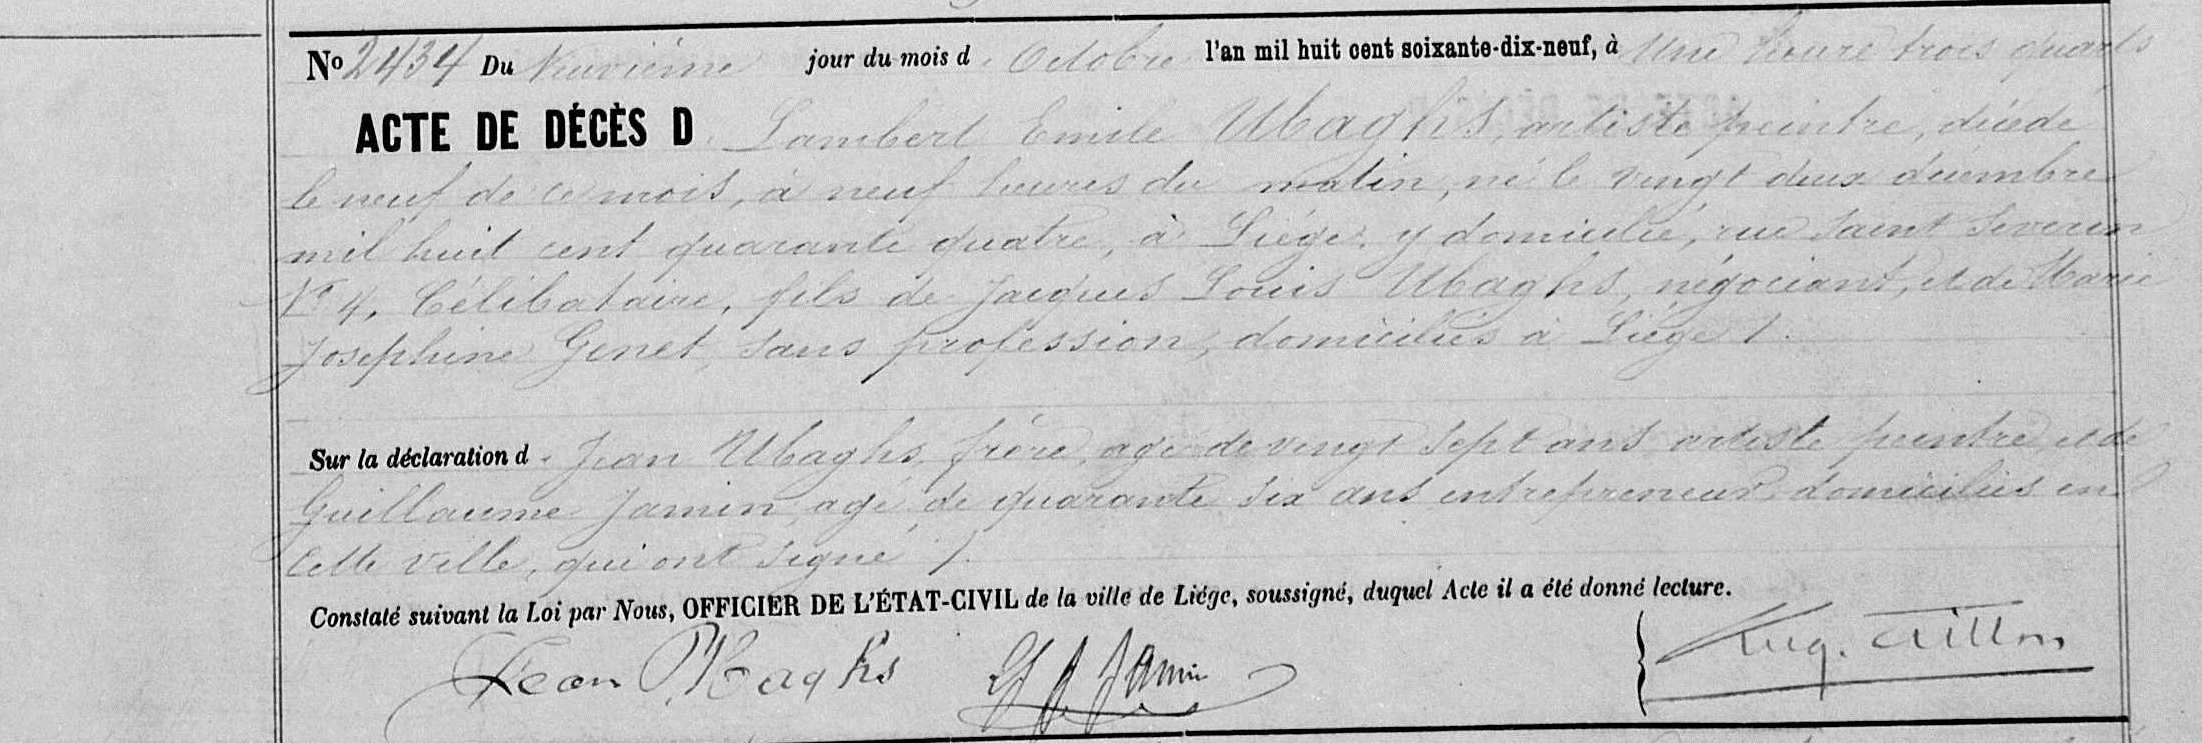 No 2434 Du Neuvième jour du mois d'Octobre l'an mil huit cent soixante-dix-neuf, à Une heure trois quarts
ACTE DE DÉCÈS D Lambert Emile Ubaghs, artiste peintre, décédé
le neuf de ce mois, à neuf heures du matin, né le vingt deux décembre
mil huit cent quarante quatre, à Liége, y domicilié, rue Saint Severin
No 4, Célibataire, fils de Jacques Louis Ubaghs, négociant, et de Marie
Josephine Genet, sans profession, domiciliés à Liége /.
Sur la déclaration d Jean Ubaghs, frère, agé de vingt sept ans artiste peintre, et de
Guillaume Jamin, agé de quarante six ans entrepreneur, domiciliés en
Cette ville, qui ont signé /.
Constaté suivant la Loi par Nous, OFFICIER DE L'ÉTAT-CIVIL de la ville de Liége, soussigné, duquel Acte il a été donné lecture.
Jean Ubaghs Jamin